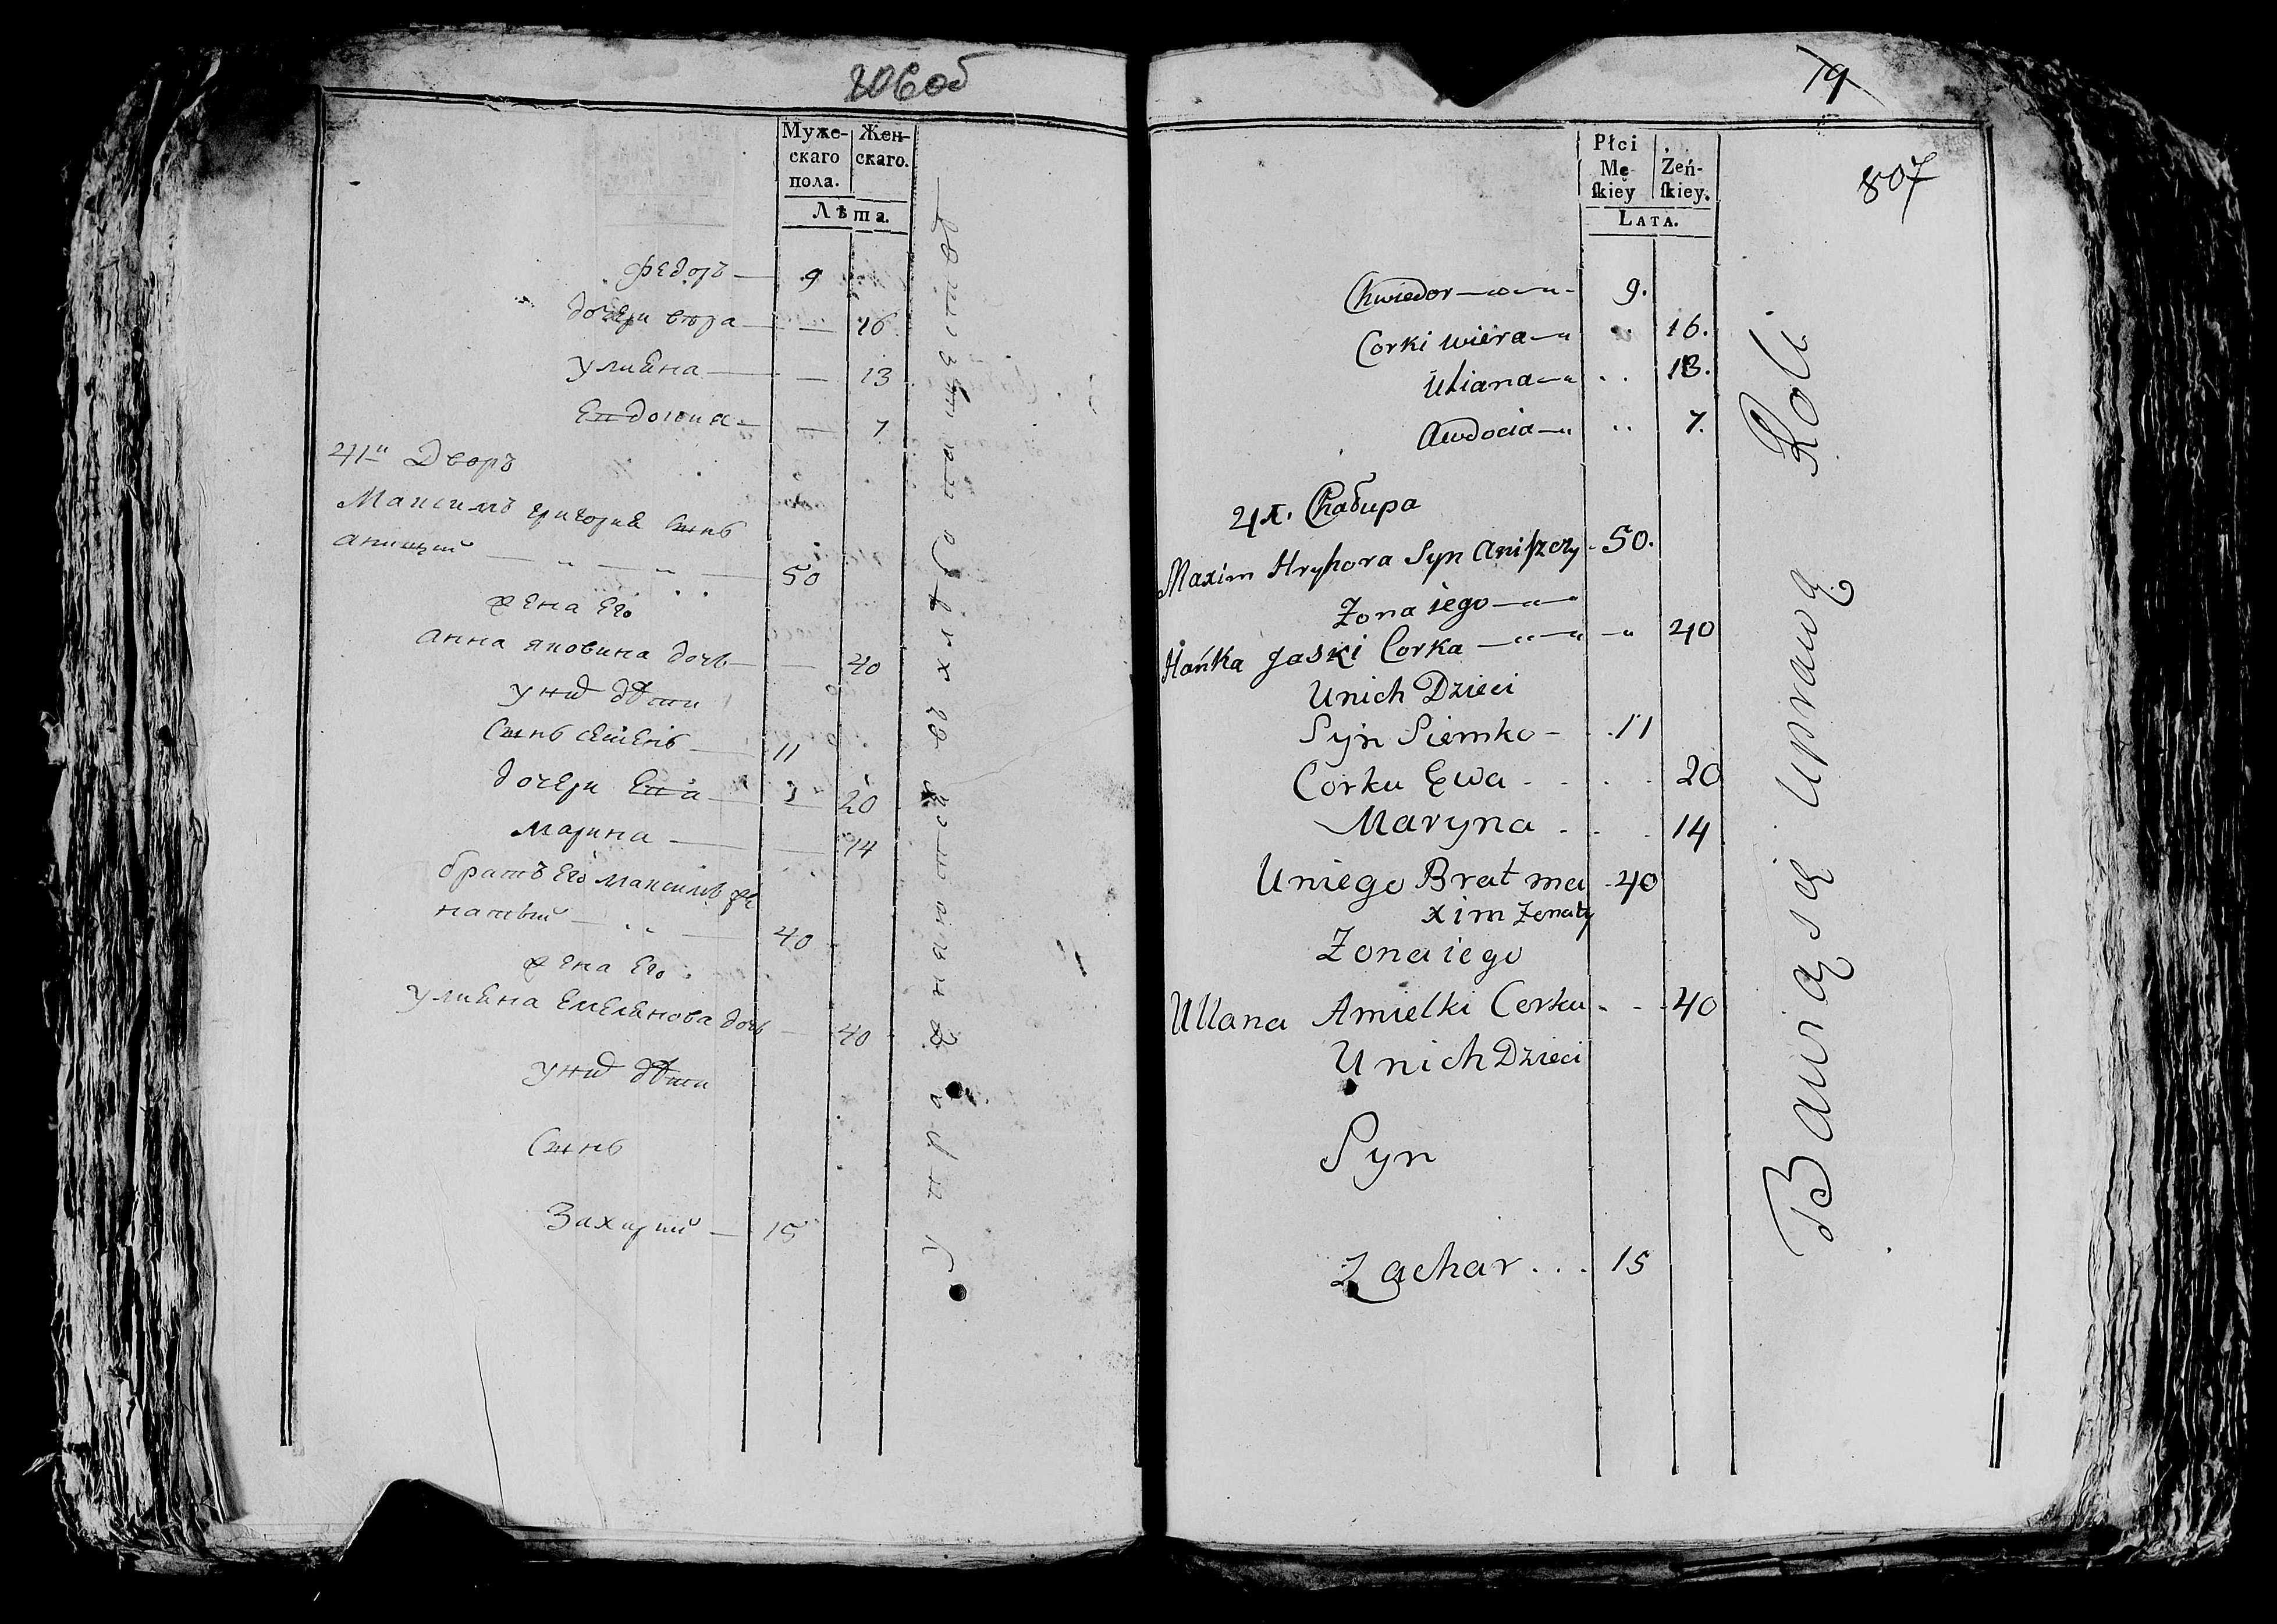 806об
Муже-скаго пола. Жен-скаго.
Лѣта.
Федоръ — 9
дочери вѣра — — 16
улиана — — 13
Евдокия — — 7
41й Дворъ
Максимъ григорiя Сынъ
анищий — „ — „ — 50
жена Его
анна яковина дочь — — 40
у них дѣти
Сынъ семенъ — 11
дочери Ева — — 20
марина — — 14
братъ Его максимъ же
натый — „ — 40
жена Его
улиана Емелянова дочь — 40
у них дѣти
Сынъ
Захарий — 15
19
807
Płci Męſkiey Żeń-ſkiey.
LATA.
Chwiedor 9.
Corki Wiera „ 16.
Uliana „ 13.
Awdocia „ 7.
41. Chałupa
Maxim Hryhora Syn Aniszczy 50.
Zona iego
Hańka Jaski Corka „ 40
Unich Dzieci
Syn Siemko - 11
Corku Ewa . . . . 20
Maryna . . . 14
Uniego Brat ma 40
xim Zenaty
Zona iego
Ullana Amielki Corku - - 40
Unich Dzieci
Syn
Zachar . . . 15
Bawią się uprawą Roli